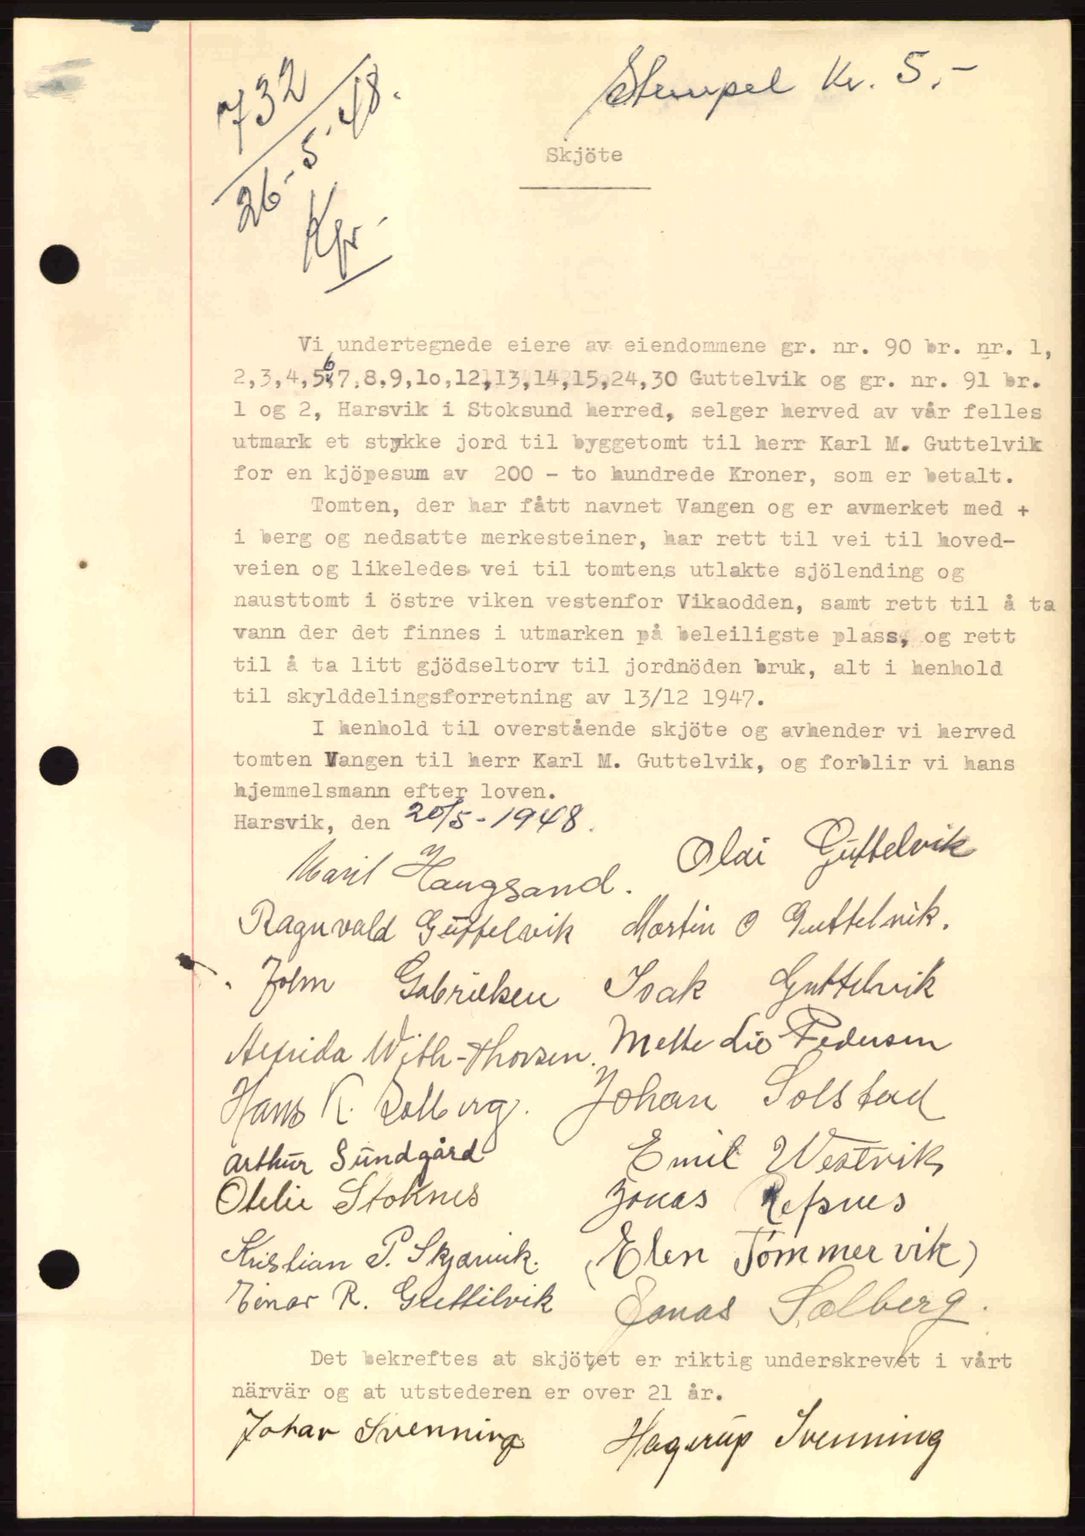 732
26-5-48.
Kfr.
Stempel Kr. 5.-
Skjöte
Vi undertegnede eiere av eiendommene gr. nr. 90 br. nr. 1,
2,3,4,5,6,7,8,9,1o,12,13,14,15,24,30 Guttelvik og gr. nr. 91 br.
1 og 2, Harsvik i Stoksund herred, selger herved av vår felles
utmark et stykke jord til byggetomt til herr Karl M. Guttelvik
for en kjöpesum av 200 - to hundrede Kroner, som er betalt.
Tomten, der har fått navnet Vangen og er avmerket med +
i berg og nedsatte merkesteiner, har rett til vei til hoved-
veien og likeledes vei til tomtens utlakte sjölending og
nausttomt i östre viken vestenfor Vikaodden, samt rett til å ta
vann der det finnes i utmarken på beleiligste plass, og rett
til å ta litt gjödseltorv til jordnöden bruk, alt i henhold
til skylddelingsforretning av 13/12 1947.
I henhold til overstående skjöte og avhender vi herved
tomten Vangen til herr Karl M. Guttelvik, og forblir vi hans
hjemmelsmann efter loven.
Harsvik, den 20/5-1948.
Marit Haugsand. Olai Guttelvik
Ragnvald Guttelvik Martin O Guttelvik.
John Gabrielsen Isak Guttelvik
With-Thorsen. Mette Lio Pedersen
Hans K. Solberg. Johan Solstad
Arthur Sundgård Emil Westvik
Otelie Stoknes Jonas Refsnes
Kristian P. Skjærvik. (Elen Tømmervik)
Einar R. Guttelvik Jonas Solberg.
Det bekreftes at skjötet er riktig underskrevet i vårt
närvär og at utstederen er over 21 år.
Johan Svenning Hagerup Svenning